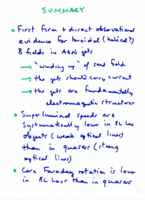 SUMMARY
• First firm & direct observational
evidence for toroidal (helical?)
B fields in AGN jets
→ "winding up" of seed field
→ the jets should carry current
→ the jets are fundamentally
electromagnetic structures
• Superluminal speeds are
systematically lower in BL Lac
objects (weak optical lines)
than in quasars (strong
optical lines)
• Core Faraday rotation is lower
in BL Lacs than in quasars